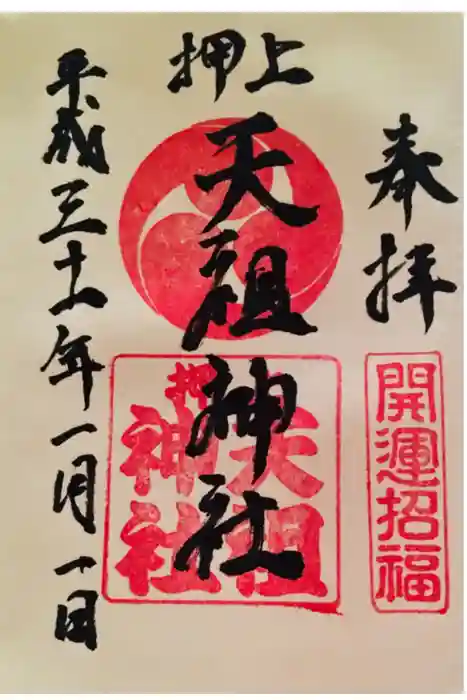 奉拝
開運招福
押上
天祖神社
押
天祖
神社
平成三十一年一月一日